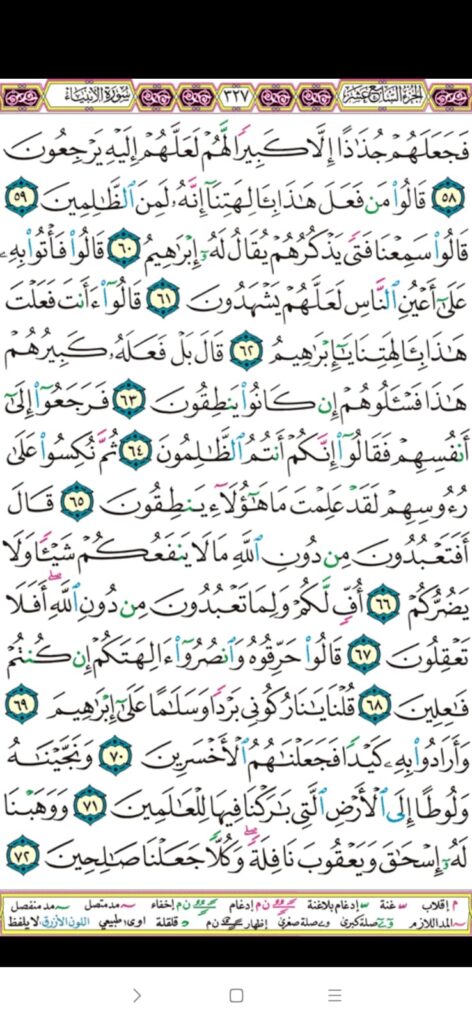 الجزء السابع عشر ٣٢٧ سورة الأنبياء
فَجَعَلَهُمْ جُذَاذًا إِلَّا كَبِيرًا لَّهُمْ لَعَلَّهُمْ إِلَيْهِ يَرْجِعُونَ
٥٨ قَالُوا۟ مَن فَعَلَ هَـٰذَا بِـَٔالِهَتِنَآ إِنَّهُۥ لَمِنَ ٱلظَّـٰلِمِينَ ٥٩
قَالُوا۟ سَمِعْنَا فَتًى يَذْكُرُهُمْ يُقَالُ لَهُۥٓ إِبْرَٰهِيمُ ٦٠ قَالُوا۟ فَأْتُوا۟ بِهِۦ
عَلَىٰٓ أَعْيُنِ ٱلنَّاسِ لَعَلَّهُمْ يَشْهَدُونَ ٦١ قَالُوٓا۟ ءَأَنتَ فَعَلْتَ
هَـٰذَا بِـَٔالِهَتِنَا يَـٰٓإِبْرَٰهِيمُ ٦٢ قَالَ بَلْ فَعَلَهُۥ كَبِيرُهُمْ
هَـٰذَا فَسْـَٔلُوهُمْ إِن كَانُوا۟ يَنطِقُونَ ٦٣ فَرَجَعُوٓا۟ إِلَىٰٓ
أَنفُسِهِمْ فَقَالُوٓا۟ إِنَّكُمْ أَنتُمُ ٱلظَّـٰلِمُونَ ٦٤ ثُمَّ نُكِسُوا۟ عَلَىٰ
رُءُوسِهِمْ لَقَدْ عَلِمْتَ مَا هَـٰٓؤُلَآءِ يَنطِقُونَ ٦٥ قَالَ
أَفَتَعْبُدُونَ مِن دُونِ ٱللَّهِ مَا لَا يَنفَعُكُمْ شَيْـًٔا وَلَا
يَضُرُّكُمْ ٦٦ أُفٍّ لَّكُمْ وَلِمَا تَعْبُدُونَ مِن دُونِ ٱللَّهِ ۖ أَفَلَا
تَعْقِلُونَ ٦٧ قَالُوا۟ حَرِّقُوهُ وَٱنصُرُوٓا۟ ءَالِهَتَكُمْ إِن كُنتُمْ
فَـٰعِلِينَ ٦٨ قُلْنَا يَـٰنَارُ كُونِى بَرْدًا وَسَلَـٰمًا عَلَىٰٓ إِبْرَٰهِيمَ ٦٩
وَأَرَادُوا۟ بِهِۦ كَيْدًا فَجَعَلْنَـٰهُمُ ٱلْأَخْسَرِينَ ٧٠ وَنَجَّيْنَـٰهُ
وَلُوطًا إِلَى ٱلْأَرْضِ ٱلَّتِى بَـٰرَكْنَا فِيهَا لِلْعَـٰلَمِينَ ٧١ وَوَهَبْنَا
لَهُۥٓ إِسْحَـٰقَ وَيَعْقُوبَ نَافِلَةً ۖ وَكُلًّا جَعَلْنَا صَـٰلِحِينَ ٧٢
م إقلاب غنة إدغام بلاغنة ن م إدغام ن م إخفاء مد متصل مد منفصل
المد اللازم صلة كبرى صلة صغرى إظهار ن م قلقلة اوى طبيعي اللون الأزرق لا يلفظ